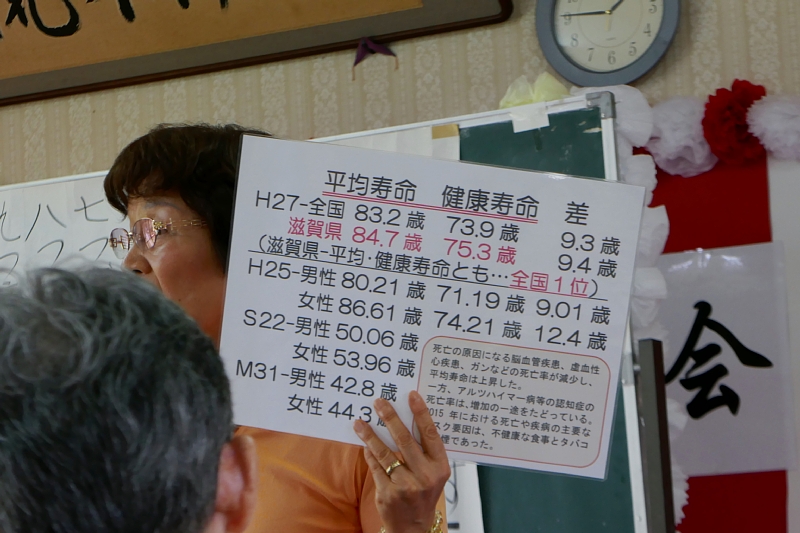 平均寿命 健康寿命 差
H27-全国 83.2歳 73.9歳 9.3歳
滋賀県 84.7歳 75.3歳 9.4歳
(滋賀県-平均・健康寿命とも…全国1位)
H25-男性 80.21歳 71.19歳 9.01歳
女性 86.61歳 74.21歳 12.4歳
S22-男性 50.06歳
女性 53.96歳
M31-男性 42.8歳
女性 44.3
死亡の原因になる脳血管疾患、虚血性
心疾患、ガンなどの死亡率が減少し、
平均寿命は上昇した。
一方、アルツハイマー病等の認知症の
死亡率は、増加の一途をたどっている。
2015年における死亡や疾病の主要な
スク要因は、不健康な食事とタバコ
煙であった。
九八七
会
12 1 2 3 4 5 6 7 8 9